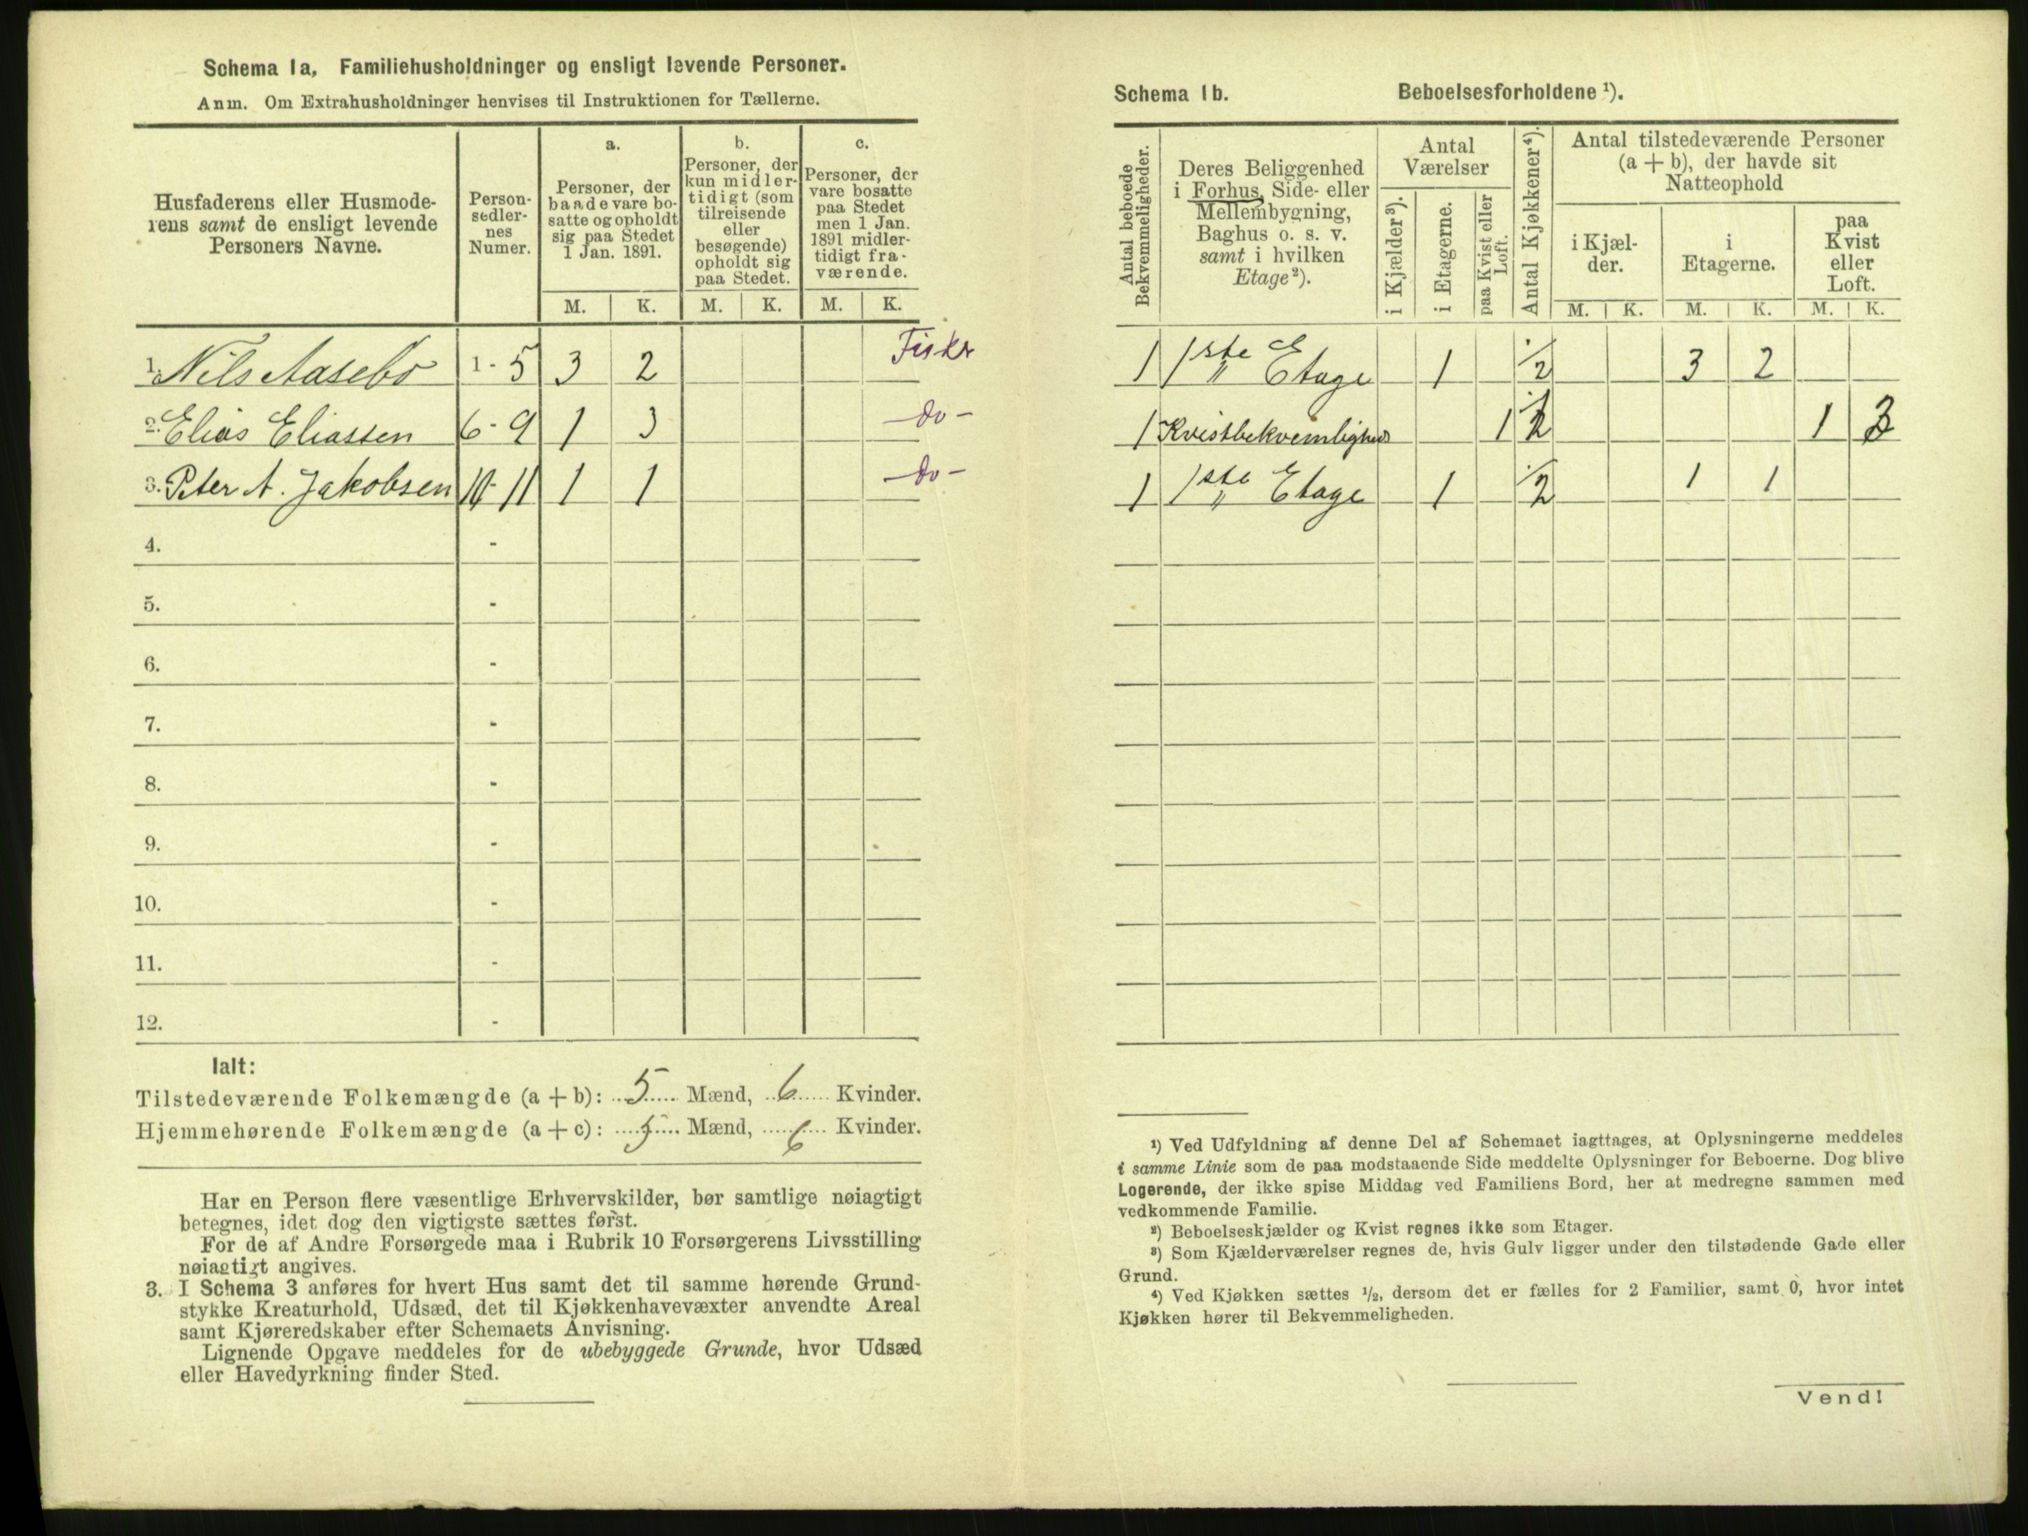 Schema 1a, Familiehusholdninger og ensligt levende Personer.
Anm. Om Extrahusholdninger henvises til Instruktionen for Tællerne.
Husfaderens eller Husmode-
rens samt de ensligt levende
Personers Navne.
Person-
sedler-
nes
Numer.
a.
Personer, der
baade vare bo-
satte og opholdt
sig paa Stedet
1 Jan. 1891.
b.
Personer, der
kun midler-
tidigt (som
tilreisende
eller
besøgende)
opholdt sig
paa Stedet.
c.
Personer, der
vare bosatte
paa Stedet
men 1 Jan.
1891 midler-
tidigt fra-
værende.
M. K. M. K. M. K.
1. Nils Aasebo 1 - 5 3 2 Fisker
2. Elias Eliassen 6 - 9 1 3 do -
3. Peter A. Jakobsen 10 - 11 1 1 do -
4. -
5. -
6. -
7. -
8. -
9. -
10. -
11. -
12. -
Ialt:
Tilstedeværende Folkemængde (a + b): 5 Mænd, 6 Kvinder.
Hjemmehørende Folkemængde (a + c): 5 Mænd, 6 Kvinder.
Har en Person flere væsentlige Erhvervskilder, bør samtlige nøiagtigt
betegnes, idet dog den vigtigste sættes først.
For de af Andre Forsørgede maa i Rubrik 10 Forsørgerens Livsstilling
nøiagtigt angives.
3. I Schema 3 anføres for hvert Hus samt det til samme hørende Grund-
stykke Kreaturhold, Udsæd, det til Kjøkkenhavevæxter anvendte Areal
samt Kjøreredskaber efter Schemaets Anvisning.
Lignende Opgave meddeles for de ubebyggede Grunde, hvor Udsæd
eller Havedyrkning finder Sted.
Schema 1b. Beboelsesforholdene ¹).
Antal beboede
Bekvemmeligheder.
Deres Beliggenhed
i Forhus, Side- eller
Mellembygning,
Baghus o. s. v.
samt i hvilken
Etage²).
Antal
Værelser
i Kjælder³).
i Etagerne.
paa Kvist eller
Loft.
Antal Kjøkkener⁴).
Antal tilstedeværende Personer
(a + b), der havde sit
Natteophold
i Kjæl-
der.
i
Etagerne.
paa
Kvist
eller
Loft.
M. K. M. K. M. K.
1 1ste Etage 1 1/2 3 2
1 Kvistbekvemlighed 1 1/2 1 3
1 1ste Etage 1 1/2 1 1
¹) Ved Udfyldning af denne Del af Schemaet iagttages, at Oplysningerne meddeles
i samme Linie som de paa modstaaende Side meddelte Oplysninger for Beboerne. Dog blive
Logerende, der ikke spise Middag ved Familiens Bord, her at medregne sammen med
vedkommende Familie.
²) Beboelseskjælder og Kvist regnes ikke som Etager.
³) Som Kjælderværelser regnes de, hvis Gulv ligger under den tilstødende Gade eller
Grund.
⁴) Ved Kjøkken sættes 1/2, dersom det er fælles for 2 Familier, samt 0, hvor intet
Kjøkken hører til Bekvemmeligheden.
Vend!